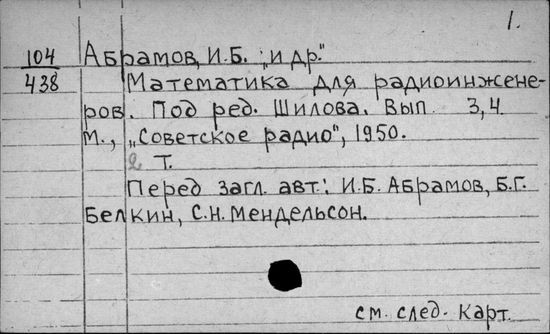 1.
104 Абрамов, И.Б. "и др."
438 Математика для радиоинжене-
ров. Под ред. Шилова. Вып. 3,4
М., „Советское радио", 1950.
2 т.
Перед загл. авт.: И.Б. Абрамов, Б.Г.
Белкин, С.Н. Мендельсон.
см. след. карт.